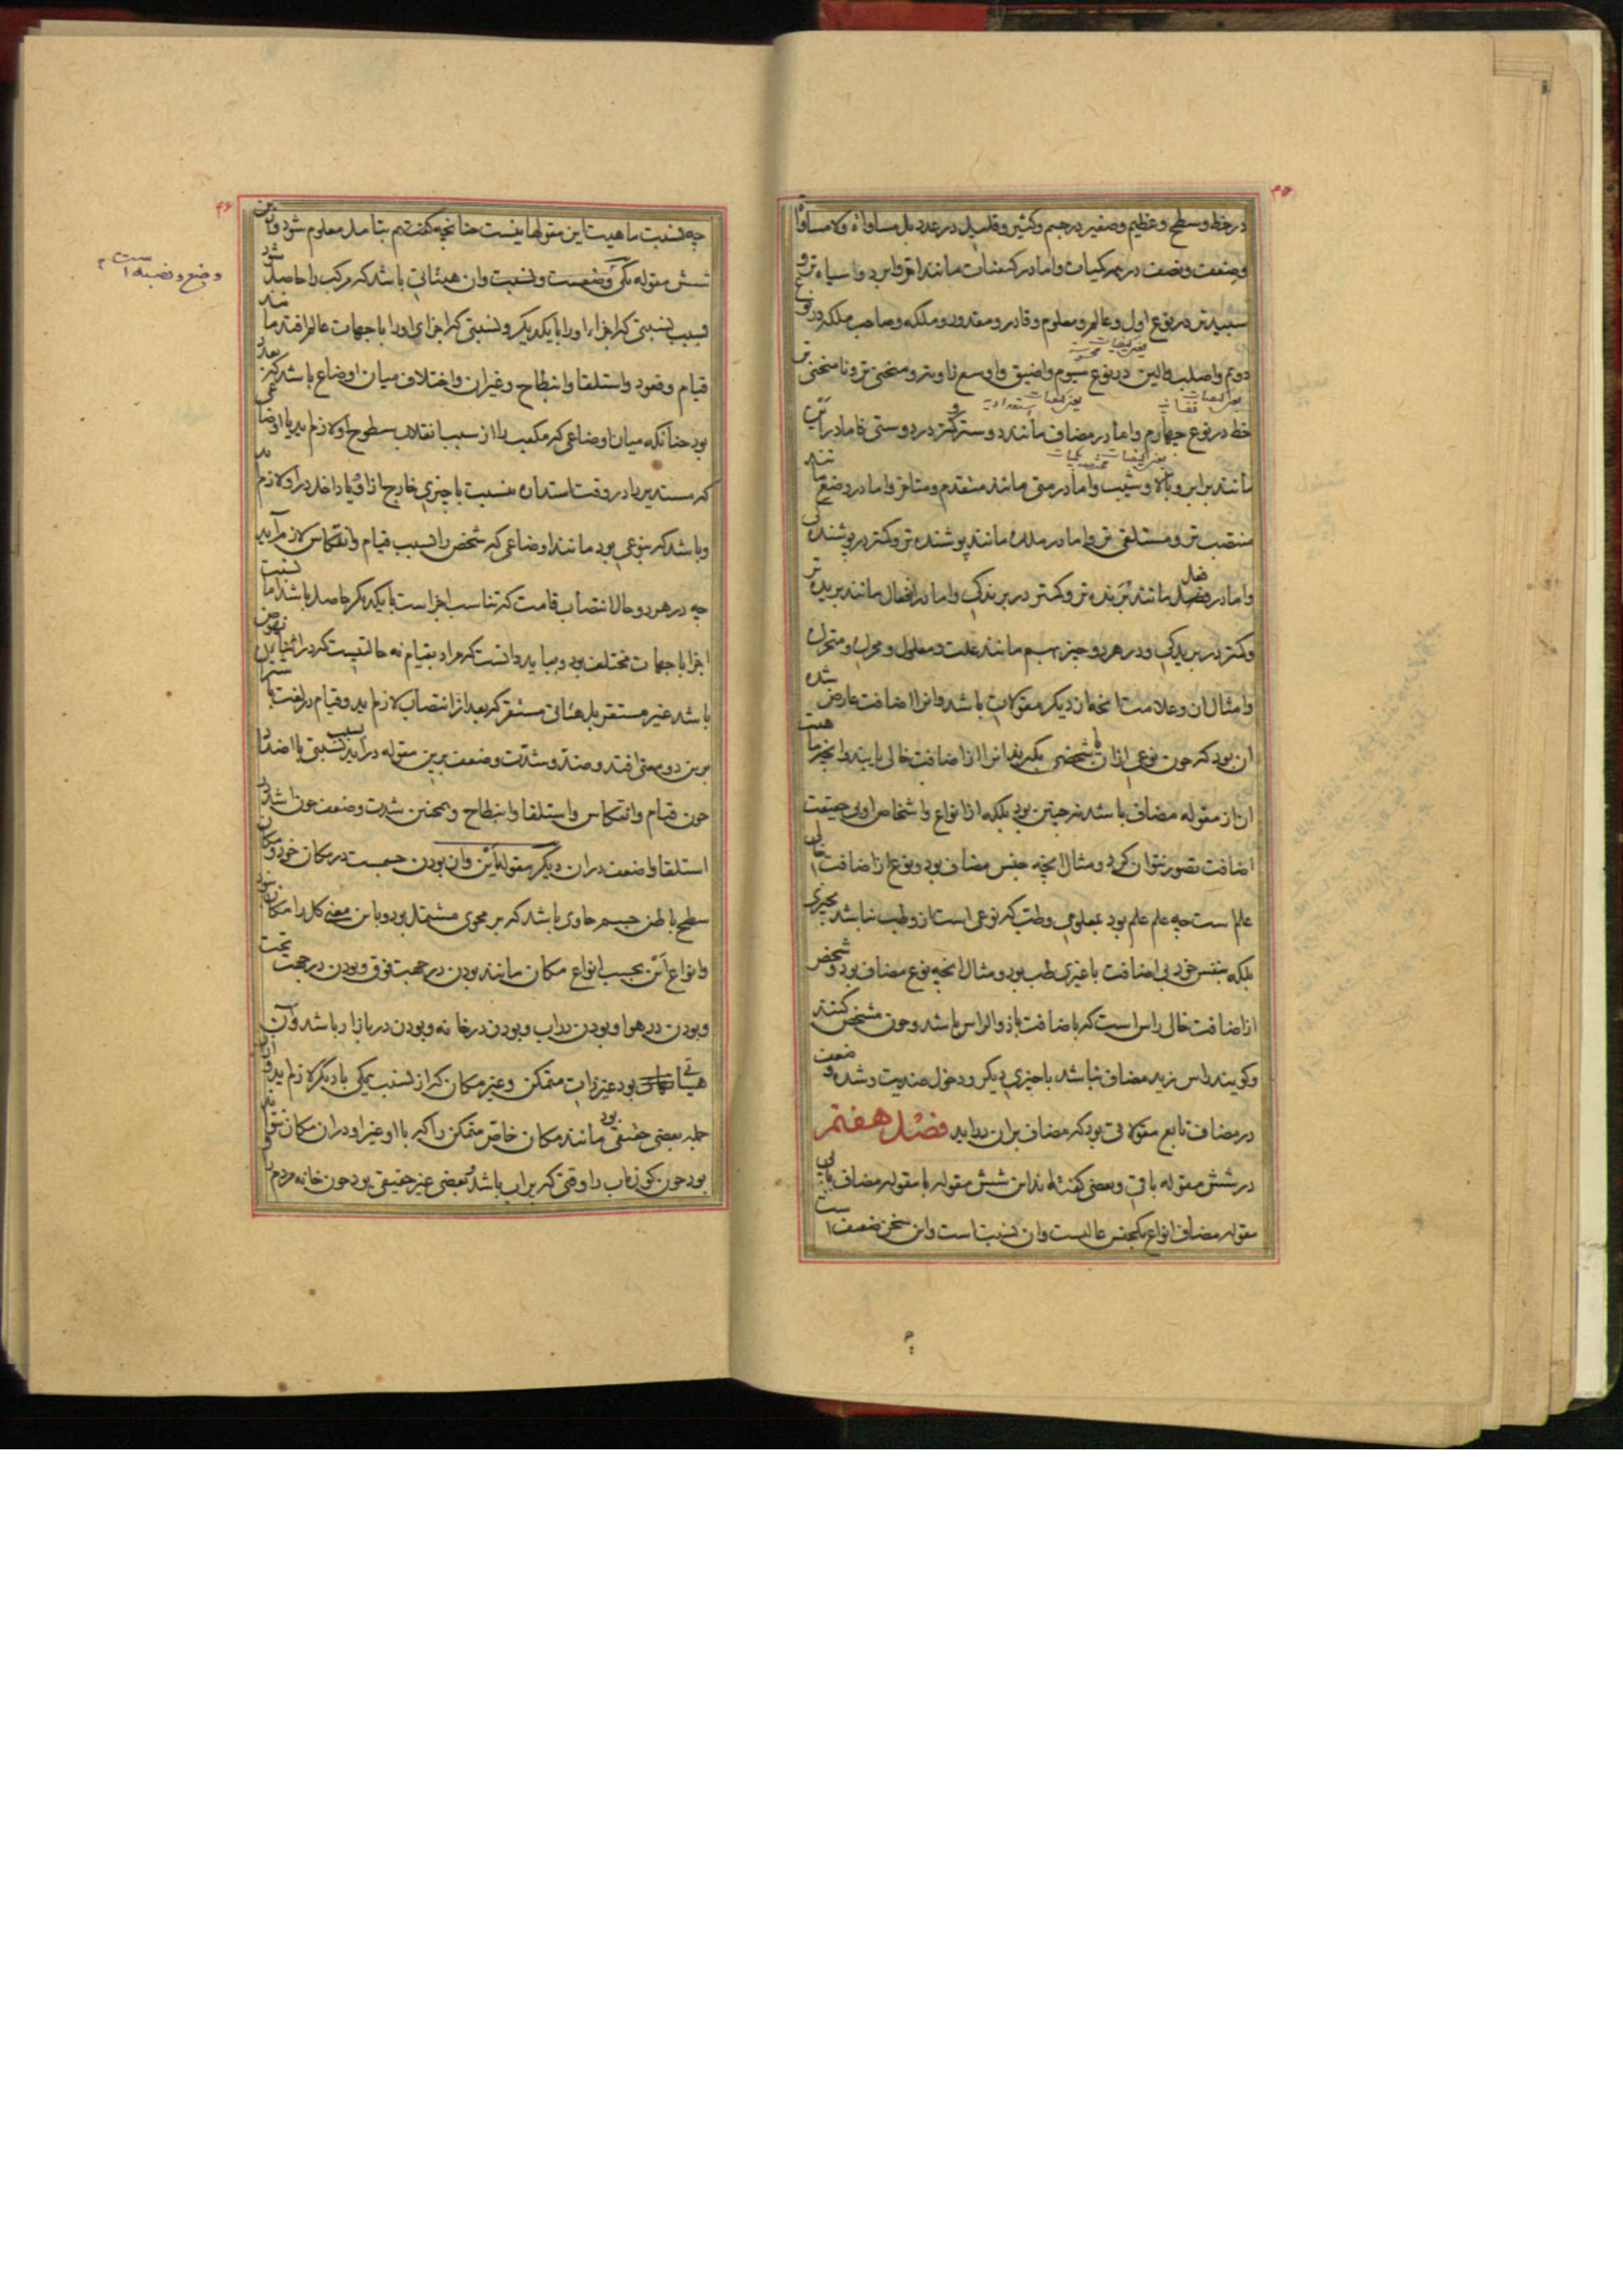 ۴۵
در خط و سطح و عظیم و صغیر در جسم و کثیر و قلیل در عدد بل مساواة و لا مساواة
و ضعف و نصف در همه کمیات و اما در کیفیات مانند احر و ابرد و سیاه تر و
سپیدتر در نوع اول و عالم و معلوم و قادر و مقدور و ملکه و صاحب ملکه در نوع
دویم و اصلب و الین در نوع سیوم و اضیق و اوسع زاویه تر و منحنی تر و نامنحنی تر
خط در نوع چهارم و اما در مضاف مانند دوستر و کمتر در دوستی و اما در این
مانند برابر و بالا و شیب و اما در متی مانند متقدم و متاخر و اما در وضع مانند
منتصب تر و مستلقی تر و اما در ملک مانند پوشنده تر و کمتر در پوشندگی
و اما در فعل مانند برنده تر و کمتر در برندگی و اما در انفعال مانند بریده تر
و کمتر در بریدگی و در هر دو چیز بهم مانند علت و معلول و محرک و متحرک
و امثال ان و علامت انچه از دیگر مقولات باشد و انرا اضافت عارض شده
ان بود که چون نوعی از ان یا شخصی بگیرند انرا از اضافت خالی یابند و انچه ماهیت
ان از مقوله مضاف باشد نه چنین بود بلکه از انواع و اشخاص او بی حقیقت
اضافت تصور نتوان کرد و مثال انچه جنس مضاف بود و نوع از اضافت خالی
علم است چه علم علم بود بمعلومی و طب که نوعی است از و طب نباشد بچیزی
بلکه بنفس خود بی اضافت با غیری طب بود و مثال انچه نوع مضاف بود و شخص
از اضافت خالی راس است که باضافت با ذو الراس باشد و چون مشخص کنند
و گویند راس زید مضاف نباشد با چیزی دیگر و دخول ضدیت و شده و ضعف
در مضاف تابع مقولاتی بود که مضاف بران دراید فصل هفتم
در شش مقوله باقی و بعضی گفته اند این شش مقوله با مقوله مضاف یا بی
مقوله مضاف انواع یکجنس عالیست و ان نسبت است و این سخن ضعیف است
۴۶
چه نسبت ماهیت این مقولها نیست چنانچه گفتیم بتامل معلوم شود و ازین
شش مقوله یکی وضعست و نسبت وان هیئاتی باشد که مرکب را حاصل شود
بسبب نسبتی که اجزاء اورا با یکدیگر و نسبتی که اجزای اورا با جهات عالم افتد مانند
قیام و قعود و استلقا و انبطاح و غیر ان و اختلاف میان اوضاع باشد که بعدد
بود چنانکه میان اوضاعی که مکعب را از سبب انقلاب سطوح او لازم اید یا اوضاعی
که مستدیر را در وقت استداره بنسبت با چیزی خارج از او یا داخل در او لازم اید
و باشد که بنوعی بود مانند اوضاعی که شخص را بسبب قیام و انتکاس لازم آید
چه در هر دو حال انتصاب قامت که تناسب اجزاست با یکدیگر حاصل باشد اما نسبت
اجزا با جهات مختلف بود و بباید دانست که مراد بقیام نه حالتیست که در اثنای نهوض
باشد غیر مستقر بل هیئاتی مستقر که بعد از انتصاب لازم اید و قیام در لغت
برین دو معنی افتد و ضد و شدت و ضعف برین مقوله دراید بسبب نسبتی با اضداد
چون قیام و انتکاس و استلقا و انبطاح و همچنین شدت و ضعف چون اشد
استلقا و اضعف در ان دیگر مقوله این وان بودن جسمست در مکان خود و مکان
سطح باطن جسم حاوی باشد که بر محوی مشتمل بود و باین معنی کل را مکان نبود
و انواع این بحسب انواع مکان مانند بودن در جهت فوق و بودن در جهت تحت
و بودن در هوا و بودن در آب و بودن در خانه و بودن در بازار باشد و آن
هیاتی بود غیر ذات متمکن و غیر مکان که از نسبت یکی با دیگر لازم اید و از ان
جمله بعضی حقیقی بود مانند مکان خاص متمکن را که با او غیر او در ان مکان نتواند
بود چون کوزه اب را وقتی که پر اب باشد و بعضی غیر حقیقی بود چون خانه مردم را